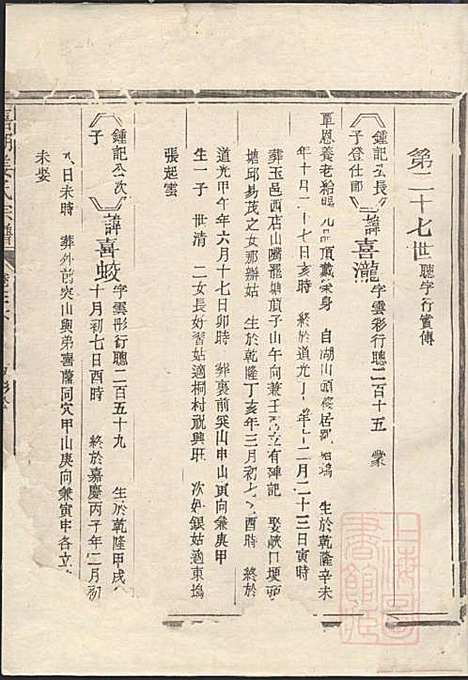 第二十七世 聽字行實傳
鍾記公長子登仕郎 諱喜瀧 字雲彩行聰二百十五 蒙
覃恩養老給賜九品頂戴榮身 自湖山頭徙居 塢 生於乾隆辛未
年十月二十七日亥時 終於道光 年 二月二十三日寅時
葬玉邑西店山嘴 塘 子山午向兼壬 立有 記 娶峽口埂
塘邱易茂之女那辦姑 生於乾隆丁亥年三月初七 酉時 終於
道光甲午年六月十七日卯時 葬裏前突山申山寅向兼庚甲
生一子 世清 二女長好習姑適桐村祝興旺 次好銀姑適東塢
張起雲
鍾記公次子 諱喜蛟 字雲彤行聰二百五十九 生於乾隆甲戌
十月初七日酉時 終於嘉慶丙子年二月初
八日未時 葬外前突山與弟喜 同穴甲山庚向兼寅申各立
未娶